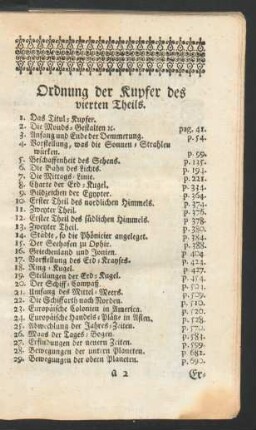 Ordnung der Kupfer des
vierten Theils.
1. Das Titul-Kupfer.
2. Die Monds-Gestalten ꝛc. pag. 41.
3. Anfang und Ende der Demmerung. p. 54.
4. Vorstellung, was die Sonnen-Strahlen
würken. p. 99.
5. Beschaffenheit des Sehens. p. 135.
6. Die Bahn des Lichts. p. 194.
7. Die Mittags-Linie. p. 221.
8. Charte der Erd-Kugel. p. 314.
9. Bildzeichen der Egypter. p. 364.
10. Erster Theil des nordlichen Himmels. p. 374.
11. Zweyter Theil. p. 376.
12. Erster Theil des südlichen Himmels. p. 378.
13. Zweyter Theil. p. 380.
14. Städte, so die Phönicier angeleget. p. 384.
15. Der Seehafen zu Ophir. p. 388.
16. Griechenland und Jonien. p. 414.
17. Vorstellung des Erd-Krayses. p. 423.
18. Ring-Kugel. p. 427.
19. Stellungen der Erd-Kugel. p. 454.
20. Der Schiff-Compaß. p. 501.
21. Umfang des Mittel-Meers. p. 509.
22. Die Schiffarth nach Norden. p. 510.
23. Europäische Colonien in America. p. 520.
24. Europäische Handels-Plätze in Asien. p. 528.
25. Abwechslung der Jahres-Zeiten. p. 570.
26. Maas der Tages-Bogen. p. 581.
27. Erfindungen der neuern Zeiten. p. 599.
28. Bewegungen der untern Planeten. p. 681.
29. Bewegungen der obern Planeten. p. 690.
a 2 Er-